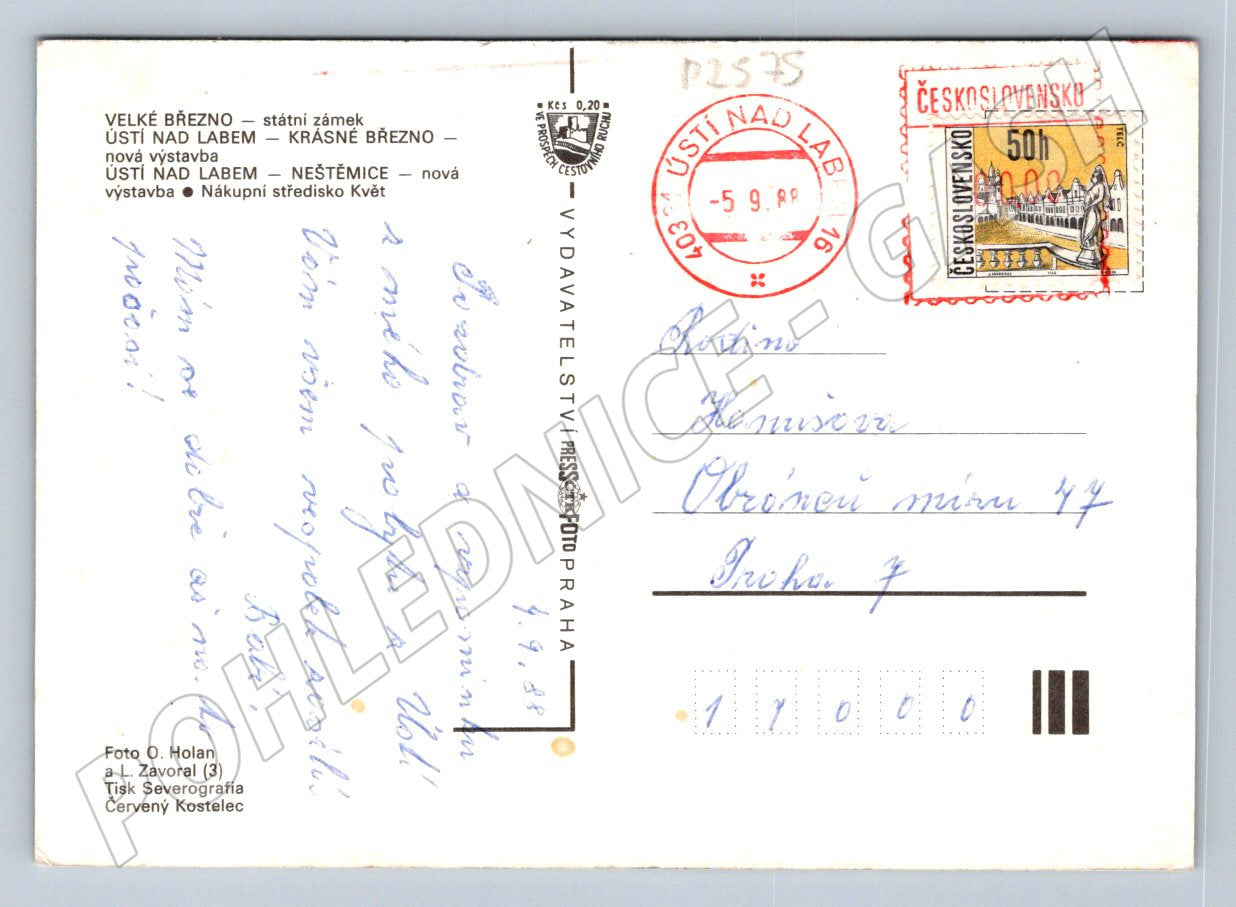 VELKÉ BŘEZNO – státní zámek
ÚSTÍ NAD LABEM – KRÁSNÉ BŘEZNO –
nová výstavba
ÚSTÍ NAD LABEM – NEŠTĚMICE – nová
výstavba ● Nákupní středisko Květ
Pozdrav a vzpomínku
z mého pobytu v Ústí
Vám všem
Babi
Mám se dobře až na
4.9.88
Foto O. Holan
a L. Závoral (3)
Tisk Severografia
Červený Kostelec
Kčs 0,20
VE PROSPĚCH CESTOVNÍHO RUCHU
VYDAVATELSTVÍ PRESSFOTO PRAHA
ČTK
P2575
403 31 ÚSTÍ NAD LABEM 16
-5.9.88
ČESKOSLOVENSKO
ČESKOSLOVENSKO
50h
TELČ
Rodina
Obránců míru 47
Praha 7
17000
POHLEDNICE - GASH